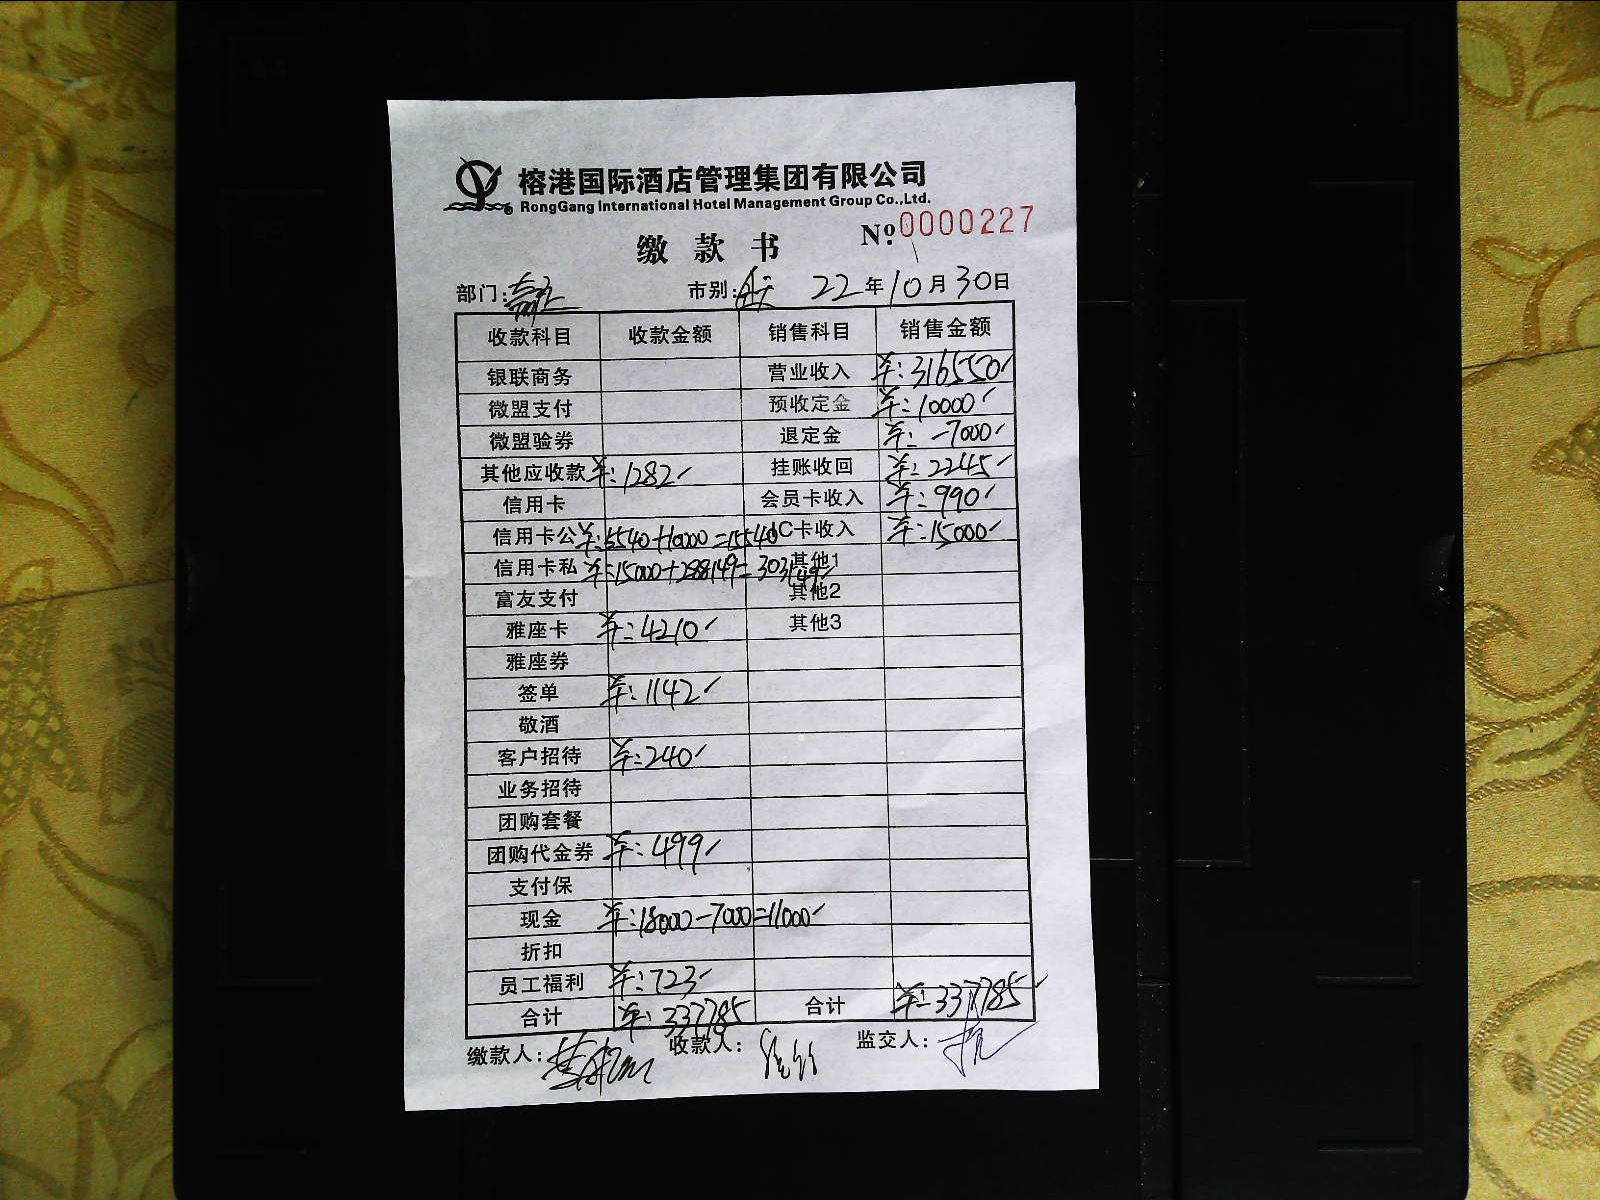 榕港国际酒店管理集团有限公司
RongGang International Hotel Management Group Co.,Ltd.
缴款书 Nº 0000227
部门: 市别: 22年10月30日
收款科目 收款金额 销售科目 销售金额
银联商务 营业收入 ¥:316550
微盟支付 预收定金 ¥:10000
微盟验券 退定金 ¥:-7000
其他应收款 ¥:1282 挂账收回 ¥:2245
信用卡 会员卡收入 ¥:990
信用卡公 ¥:5540+10000=15540 IC卡收入 ¥:15000
信用卡私 ¥:15000+288149=303149 其他1
富友支付 其他2
雅座卡 ¥:4210 其他3
雅座券
签单 ¥:1142
敬酒
客户招待 ¥:240
业务招待
团购套餐
团购代金券 ¥:499
支付保
现金 ¥:18000-7000=11000
折扣
员工福利 ¥:723
合计 ¥:337785 合计 ¥:337785
缴款人: 收款人: 监交人: